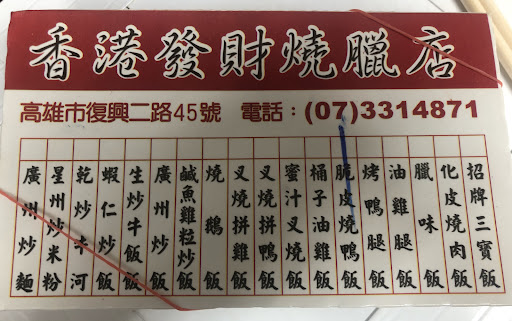 香港發財燒臘店
高雄市復興二路45號 電話：(07)3314871
招牌三寶飯
化皮燒肉飯
臘味飯
油雞腿飯
烤鴨腿飯
脆皮燒鴨飯
桶子油雞飯
蜜汁叉燒飯
叉燒拼鴨飯
叉燒拼雞飯
燒鵝飯
鹹魚雞粒炒飯
廣州炒飯
生炒牛飯
蝦仁炒飯
乾炒牛河
星州炒米粉
廣州炒麵